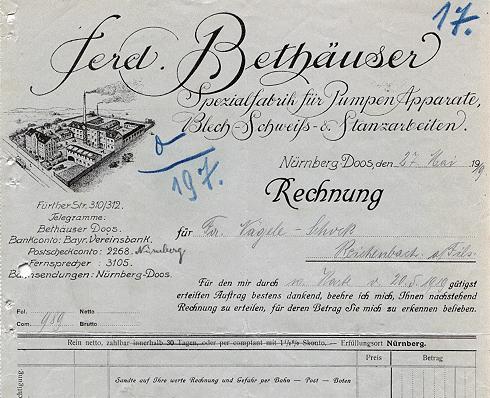 17.
Ferd. Bethäuser
Spezialfabrik für Pumpen Apparate,
Blech-Schweiß- & Stanzarbeiten.
Nürnberg-Doos, den 27 Mai 1919
197.
Rechnung
Fürther Str. 310/312.
Telegramme:
Bethäuser Doos.
Bankconto: Bayr. Vereinsbank.
Postscheckconto: 2268. Nürnberg
Fernsprecher: 3105.
Bahnsendungen: Nürnberg-Doos.
für Fr. Nägele-Schock
Reichenbach a/Fils
Für den mir durch v. 20.5.1919 gütigst
erteilten Auftrag bestens dankend, beehre ich mich, Ihnen nachstehend
Rechnung zu erteilen, für deren Betrag Sie mich zu erkennen belieben.
Fol. Netto
Com. 989 Brutto
Rein netto, zahlbar innerhalb 30 Tagen, oder per comptant mit 1½% Skonto. — Erfüllungsort Nürnberg.
Preis Betrag
Sandte auf Ihre werte Rechnung und Gefahr per Bahn — Post — Boten